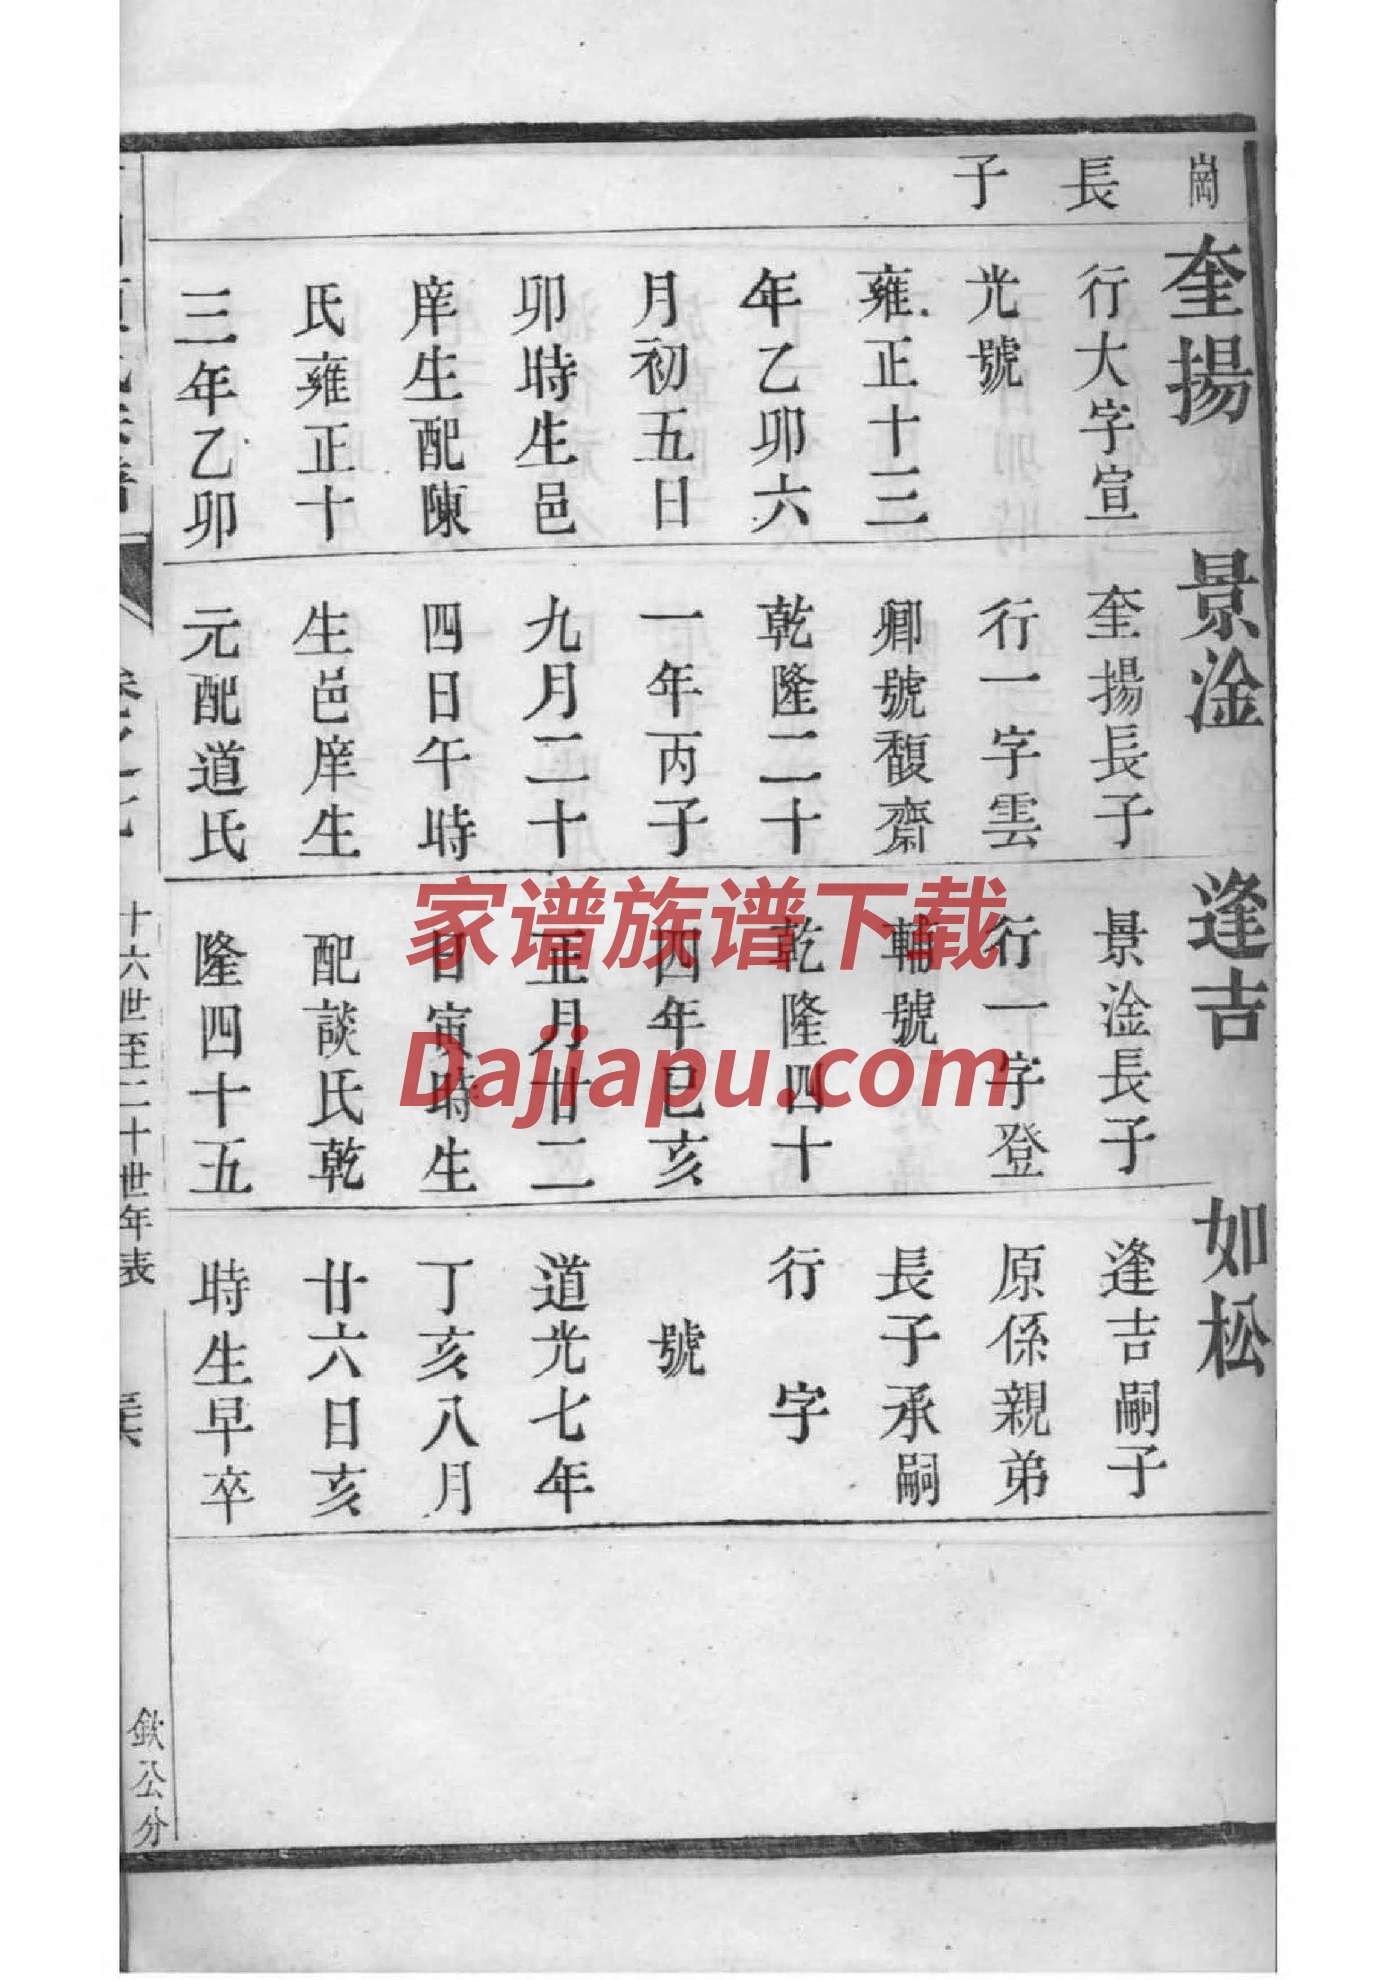 崗長子
奎揚
行大字宣
光號
雍正十三
年乙卯六
月初五日
卯時生邑
庠生配陳
氏雍正十
三年乙卯
景淦
奎揚長子
行一字雲
卿號馥齋
乾隆二十
一年丙子
九月二十
四日午時
生邑庠生
元配道氏
逢吉
景淦長子
行一字登
輔號
乾隆四十
四年已亥
正月廿二
日寅時生
配談氏乾
隆四十五
如松
逢吉嗣子
原係親弟
長子承嗣
行 字
號
道光七年
丁亥八月
廿六日亥
時生早卒
十六世至二十世年表
欽公分
家谱族谱下载
Dajiapu.com